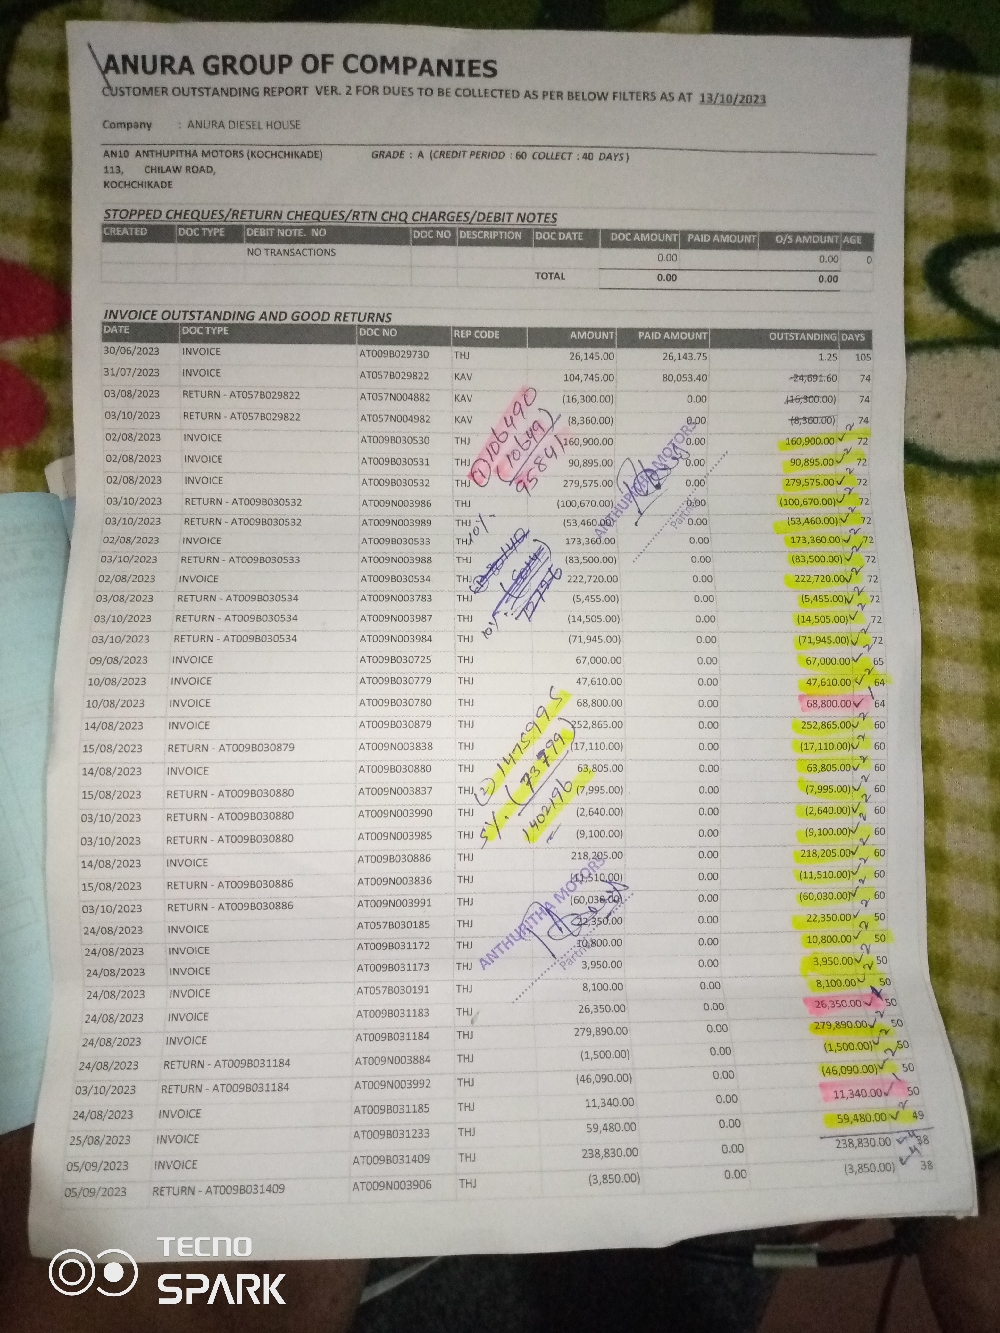 ANURA GROUP OF COMPANIES
CUSTOMER OUTSTANDING REPORT VER. 2 FOR DUES TO BE COLLECTED AS PER BELOW FILTERS AS AT 13/10/2023
Company : ANURA DIESEL HOUSE
AN10 ANTHUPITHA MOTORS (KOCHCHIKADE) GRADE : A (CREDIT PERIOD : 60 COLLECT : 40 DAYS)
113, CHILAW ROAD,
KOCHCHIKADE
STOPPED CHEQUES/RETURN CHEQUES/RTN CHQ CHARGES/DEBIT NOTES
CREATED DOC TYPE DEBIT NOTE. NO DOC NO DESCRIPTION DOC DATE DOC AMOUNT PAID AMOUNT O/S AMOUNT AGE
NO TRANSACTIONS 0.00 0.00 0
TOTAL 0.00 0.00
INVOICE OUTSTANDING AND GOOD RETURNS
DATE DOC TYPE DOC NO REP CODE AMOUNT PAID AMOUNT OUTSTANDING DAYS
30/06/2023 INVOICE AT009B029730 THJ 26,145.00 26,143.75 1.25 105
31/07/2023 INVOICE AT057B029822 KAV 104,745.00 80,053.40 24,691.60 74
03/08/2023 RETURN - AT057B029822 AT057N004882 KAV (16,300.00) 0.00 (16,300.00) 74
03/10/2023 RETURN - AT057B029822 AT057N004982 KAV (8,360.00) 0.00 (8,360.00) 74
02/08/2023 INVOICE AT009B030530 THJ 160,900.00 0.00 160,900.00 2 72
02/08/2023 INVOICE AT009B030531 THJ 90,895.00 0.00 90,895.00 2 72
02/08/2023 INVOICE AT009B030532 THJ 279,575.00 0.00 279,575.00 2 72
03/10/2023 RETURN - AT009B030532 AT009N003986 THJ (100,670.00) 0.00 (100,670.00) 2 72
03/10/2023 RETURN - AT009B030532 AT009N003989 THJ (53,460.00) 0.00 (53,460.00) 2 72
02/08/2023 INVOICE AT009B030533 THJ 173,360.00 0.00 173,360.00 2 72
03/10/2023 RETURN - AT009B030533 AT009N003988 THJ (83,500.00) 0.00 (83,500.00) 2 72
02/08/2023 INVOICE AT009B030534 THJ 222,720.00 0.00 222,720.00 2 72
03/08/2023 RETURN - AT009B030534 AT009N003783 THJ (5,455.00) 0.00 (5,455.00) 2 72
03/10/2023 RETURN - AT009B030534 AT009N003987 THJ (14,505.00) 0.00 (14,505.00) 2 72
03/10/2023 RETURN - AT009B030534 AT009N003984 THJ (71,945.00) 0.00 (71,945.00) 2 72
09/08/2023 INVOICE AT009B030725 THJ 67,000.00 0.00 67,000.00 2 65
10/08/2023 INVOICE AT009B030779 THJ 47,610.00 0.00 47,610.00 2 64
10/08/2023 INVOICE AT009B030780 THJ 68,800.00 0.00 68,800.00 1 64
14/08/2023 INVOICE AT009B030879 THJ 252,865.00 0.00 252,865.00 2 60
15/08/2023 RETURN - AT009B030879 AT009N003838 THJ (17,110.00) 0.00 (17,110.00) 2 60
14/08/2023 INVOICE AT009B030880 THJ 63,805.00 0.00 63,805.00 2 60
15/08/2023 RETURN - AT009B030880 AT009N003837 THJ (7,995.00) 0.00 (7,995.00) 2 60
03/10/2023 RETURN - AT009B030880 AT009N003990 THJ (2,640.00) 0.00 (2,640.00) 2 60
03/10/2023 RETURN - AT009B030880 AT009N003985 THJ (9,100.00) 0.00 (9,100.00) 2 60
14/08/2023 INVOICE AT009B030886 THJ 218,205.00 0.00 218,205.00 2 60
15/08/2023 RETURN - AT009B030886 AT009N003836 THJ (11,510.00) 0.00 (11,510.00) 2 60
03/10/2023 RETURN - AT009B030886 AT009N003991 THJ (60,030.00) 0.00 (60,030.00) 2 60
24/08/2023 INVOICE AT057B030185 THJ 22,350.00 0.00 22,350.00 2 50
24/08/2023 INVOICE AT009B031172 THJ 10,800.00 0.00 10,800.00 2 50
24/08/2023 INVOICE AT009B031173 THJ 3,950.00 0.00 3,950.00 2 50
24/08/2023 INVOICE AT057B030191 THJ 8,100.00 0.00 8,100.00 2 50
24/08/2023 INVOICE AT009B031183 THJ 26,350.00 0.00 26,350.00 1 50
24/08/2023 INVOICE AT009B031184 THJ 279,890.00 0.00 279,890.00 2 50
24/08/2023 RETURN - AT009B031184 AT009N003884 THJ (1,500.00) 0.00 (1,500.00) 2 50
03/10/2023 RETURN - AT009B031184 AT009N003992 THJ (46,090.00) 0.00 (46,090.00) 2 50
24/08/2023 INVOICE AT009B031185 THJ 11,340.00 0.00 11,340.00 1 50
25/08/2023 INVOICE AT009B031233 THJ 59,480.00 0.00 59,480.00 2 49
05/09/2023 INVOICE AT009B031409 THJ 238,830.00 0.00 238,830.00 38
05/09/2023 RETURN - AT009B031409 AT009N003906 THJ (3,850.00) 0.00 (3,850.00) 38
① 106490
10% (10649)
95841
10%
② 1475995
5% (73799)
1402196
ANTHUPITHA MOTORS
Partner
ANTHUPITHA MOTORS
Partner
TECNO
SPARK